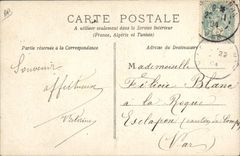 CARTE POSTALE
A utiliser seulement dans le Service Intérieur
(France, Algérie et Tunisie)
Partie réservée à la Correspondance
Adresse du Destinataire
Souvenir
affectueux
Mademoiselle
Félicie Blanc
à la Roque
Esclapon
(Var)